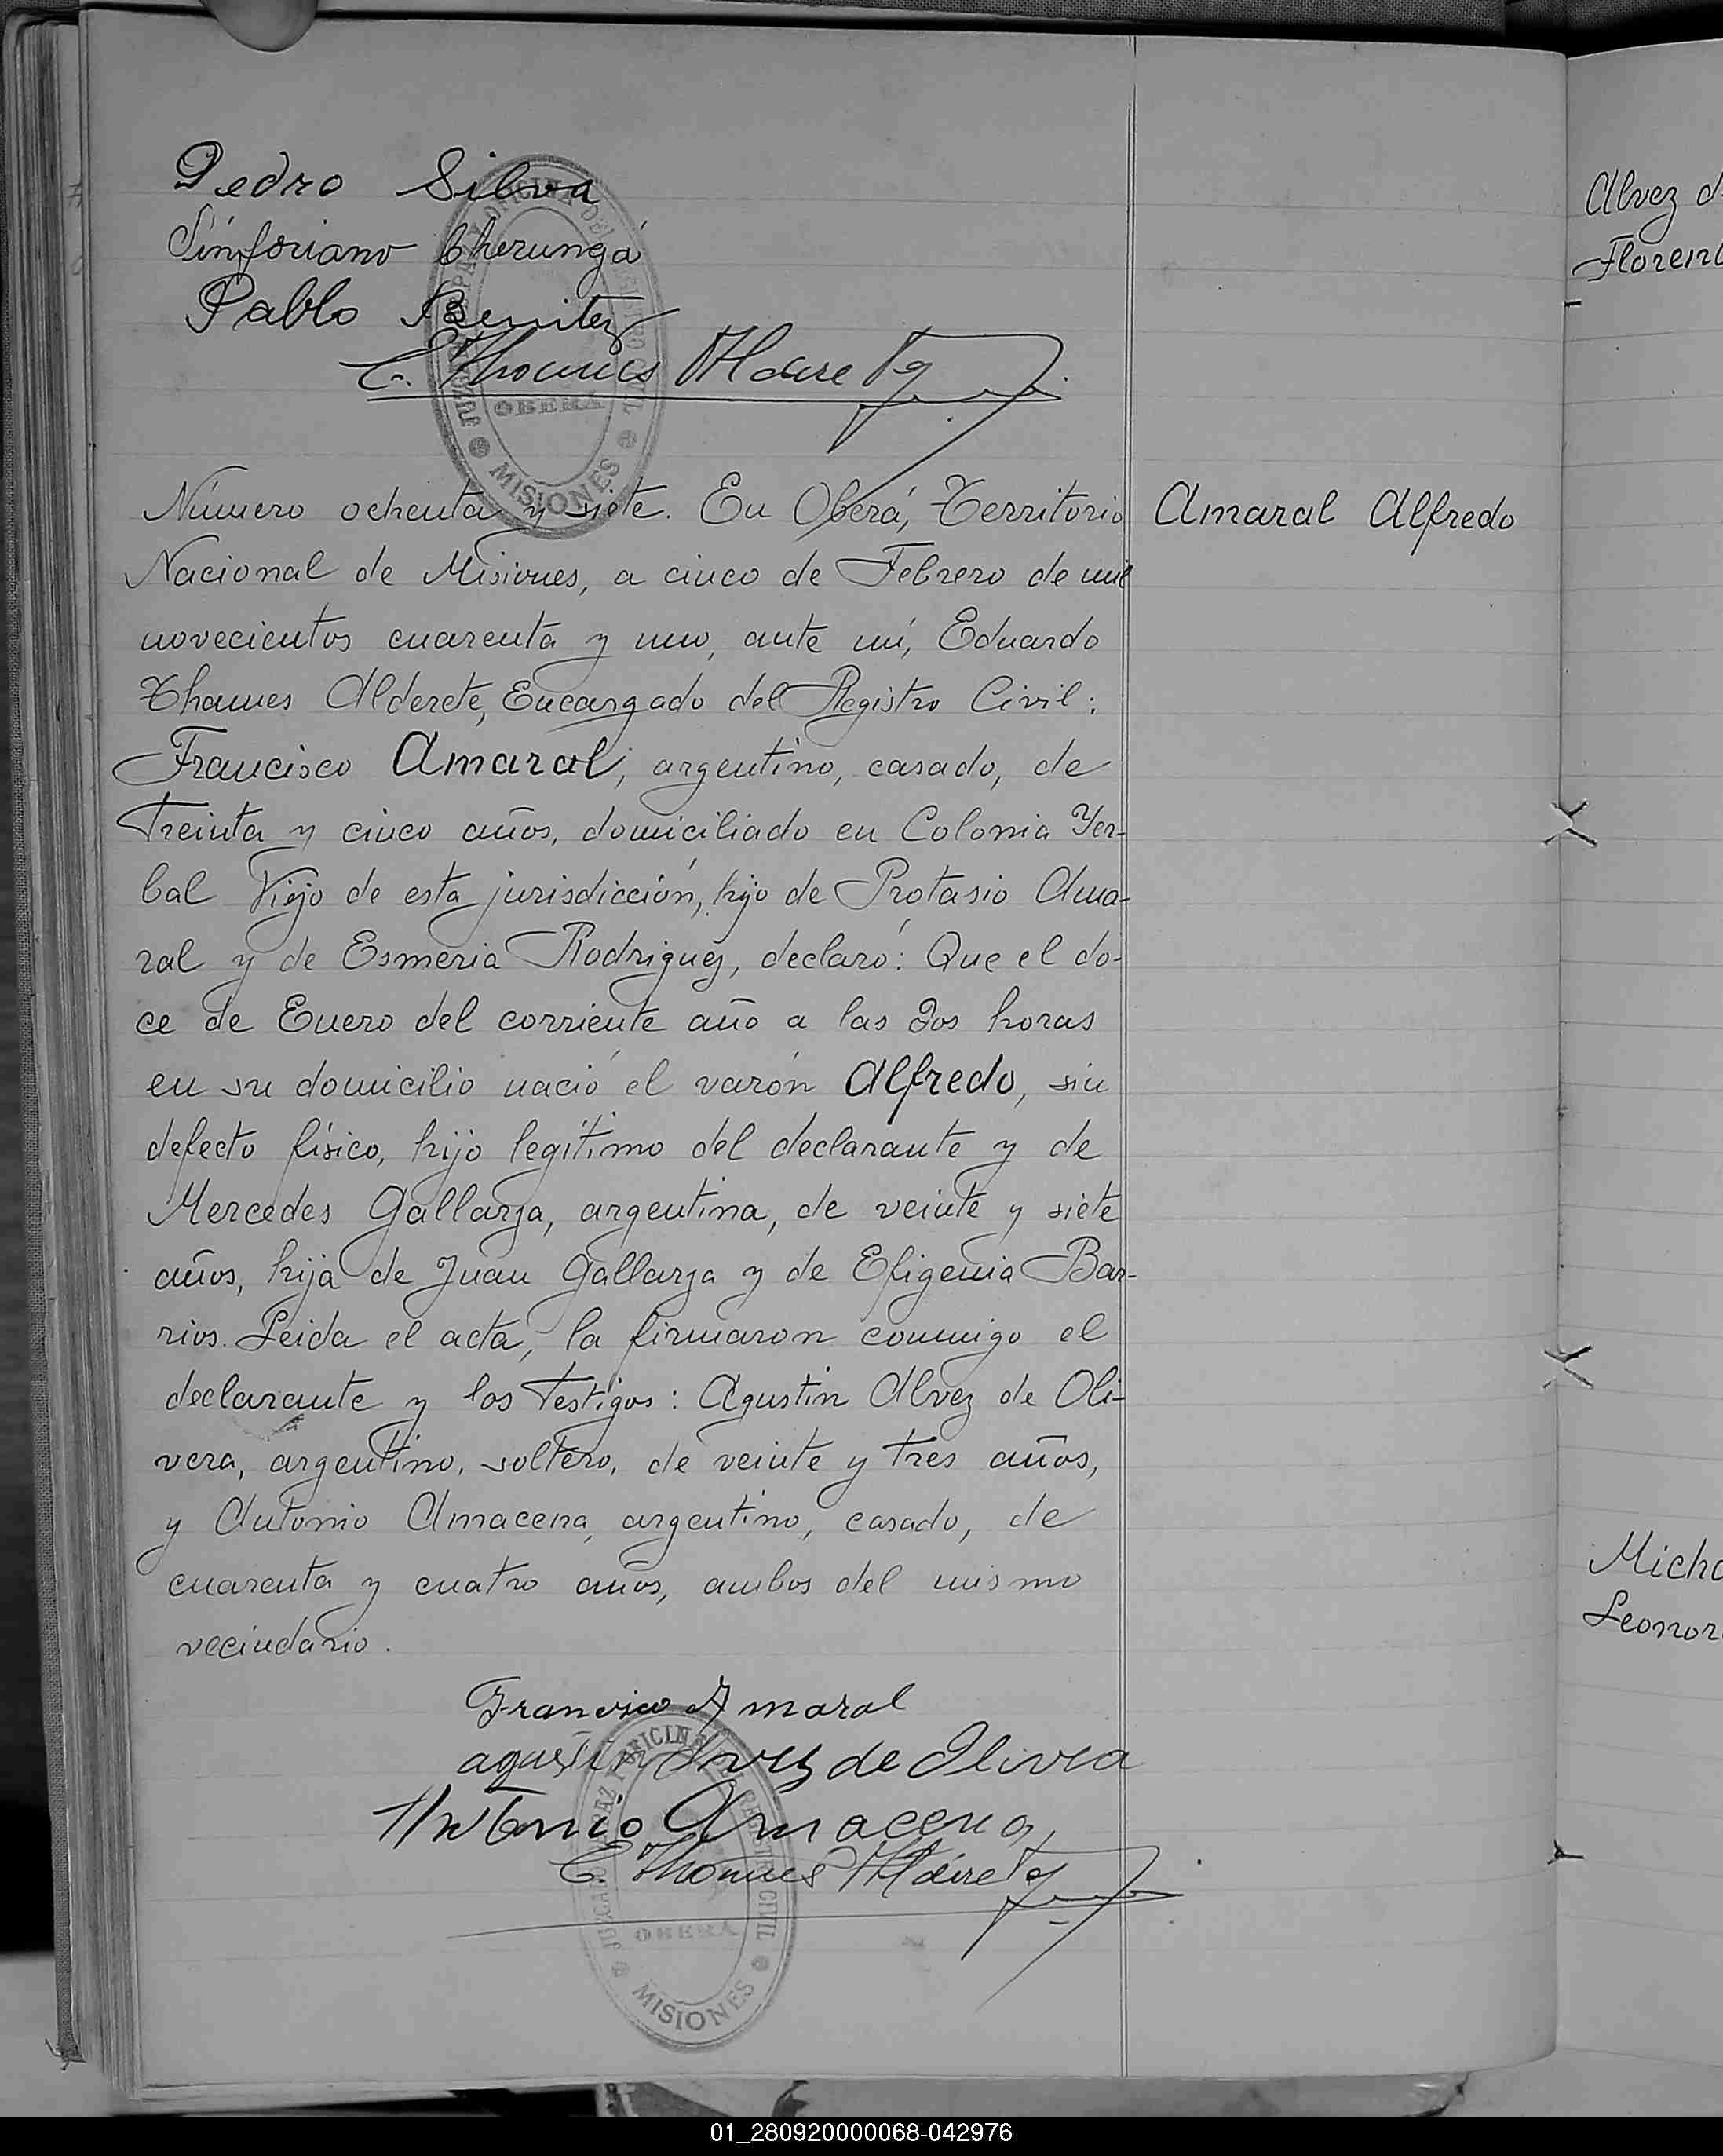 Pedro Silva
Sinforiano Cherunga
Pablo Benitez
E. Thames Alderete
JUZGADO DE PAZ Y OFICINA DEL REGISTRO CIVIL
OBERA
MISIONES
Número ochenta y siete. En Oberá, Territorio
Nacional de Misiones, a cinco de Febrero de mil
novecientos cuarenta y uno, ante mí, Eduardo
Thames Alderete, Encargado del Registro Civil:
Francisco Amaral, argentino, casado, de
treinta y cinco años, domiciliado en Colonia Yer-
bal Viejo de esta jurisdicción, hijo de Protasio Ama-
ral y de Esmeria Rodriguez, declaró: Que el do-
ce de Enero del corriente año a las dos horas
en su domicilio nació el varón Alfredo, sin
defecto físico, hijo legítimo del declarante y de
Mercedes Gallarza, argentina, de veinte y siete
años, hija de Juan Gallarza y de Efigenia Bar-
rios. Leida el acta, la firmaron conmigo el
declarante y los testigos: Agustin Alvez de Oli-
vera, argentino, soltero, de veinte y tres años,
y Antonio Amacena, argentino, casado, de
cuarenta y cuatro años, ambos del mismo
vecindario.
Amaral Alfredo
Francisco Amaral
agustin Alves de Olivra
Antonio Amacena
E. Thames Alderete
JUZGADO DE PAZ Y OFICINA DEL REGISTRO CIVIL
OBERA
MISIONES
Alvez d
Floren
Micha
Leonor
01_280920000068-042976